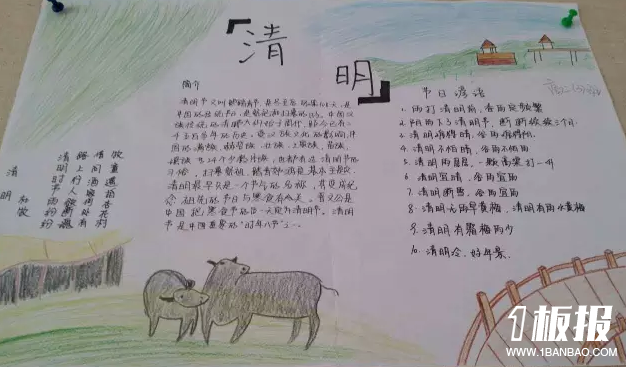 「清明」
简介
清明节又叫踏青节,在冬至后的第108天,是
中国的传统节日,也是祭祀和扫墓的日子。中国汉
族传统的清明节大约始于周代,距今已有二
千五百多年的历史。受汉族文化的影响,中
国的满族、赫哲族、壮族、土家族、苗族、
瑶族等24个少数民族,也都有过清明节的
习俗,扫墓祭祖、踏青郊游是基本主题。
清明最早只是一个节气的名称,
念祖先的节日与寒食有关。晋文公
把寒食节的后一天定为清明节。清明
节是中国重要的“时年八节”之一。
清明
杜牧
清明时节雨纷纷
路上行人欲断魂
借问酒家何处有
牧童遥指杏花村
节日谚语
1. 雨打清明前,春雨定频繁
2. 阴雨下了清明节,断断续续三个月
3. 清明难得晴,谷雨难得阴
4. 清明不怕晴,谷雨不怕雨
5. 清明雨星星,一颗高粱打一升
6. 清明宜晴,谷雨宜雨
7. 清明断雪,谷雨
8. 清明无雨旱黄梅,清明有雨水黄梅
9. 清明有霜梅雨少
10. 清明冷,好年景
1板报
WWW.1BANBAO.COM